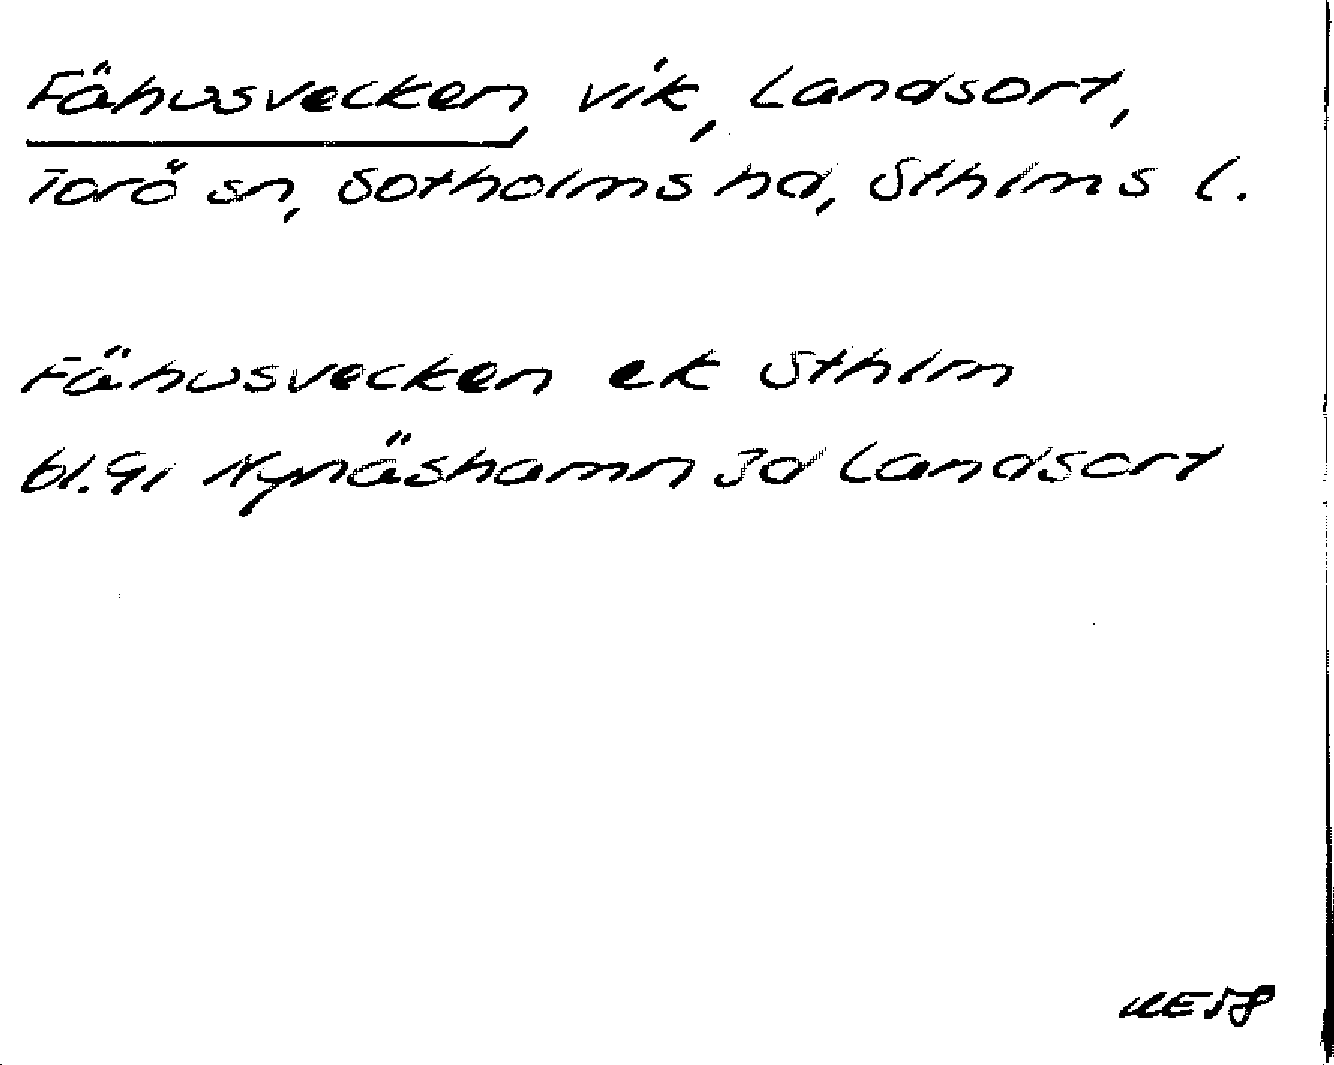 Fähusvecken, vik, Landsort,
Torö sn, Sotholms hd, Sthlms l.
Fähusvecken ek Sthlm
bl. 91 Nynäshamn 3d Landsort
UE58